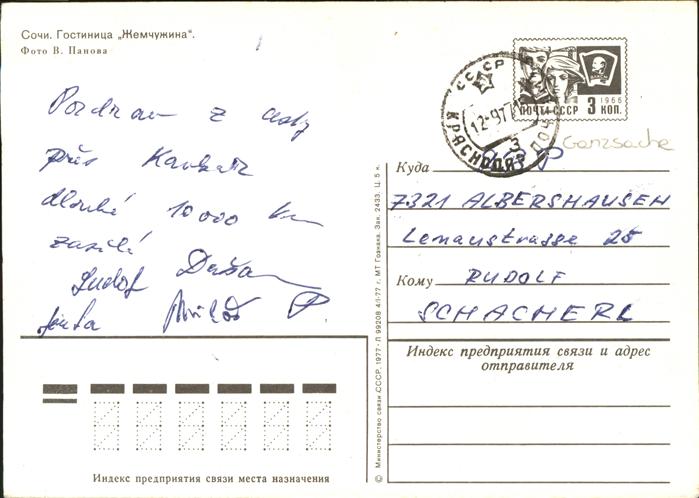 Сочи. Гостиница „Жемчужина“.
Фото В. Панова
СССР
КРАСНОДАР
3
1966
ПОЧТА СССР 3 КОП.
Ganzsache
Pozdrav z cesty
přes Kavkaz
dlouhé 10 000 km
zasílá
Rudolf Dušan
Miloš P.
Куда
7321 ALBERSHAUSEN
Lenaustrasse 25
Кому RUDOLF
SCHACHERL
Индекс предприятия связи и адрес
отправителя
Индекс предприятия связи места назначения
© Министерство связи СССР, 1977 - Л 99208 4/I-77 г. МТ Гознака. Зак. 2433. Ц. 5 к.